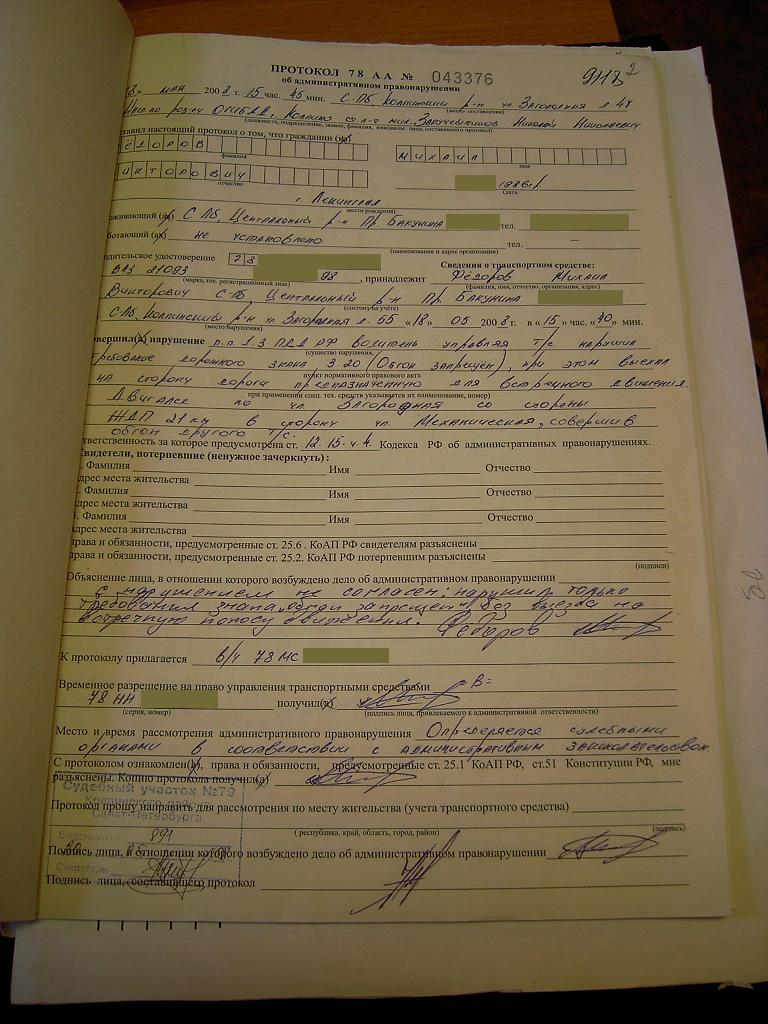 ПРОТОКОЛ 78 АА № 043376
9118 2
об административном правонарушении
8» мая 2008 г. 15 час. 45 мин. С-Пб Колпинский р-н ул. Загородная д. 4
(место составления)
(должность, подразделение, звание, фамилия, инициалы лица, составившего протокол)
ставил настоящий протокол о том, что гражданин (ка)
ЁДОРОВ МИХАИЛ
фамилия имя
ИКТОРОВИЧ 1986 г.
отчество (дата
г. Ленинград
место рождения)
оживающий (ая) С-Пб, Центральный р-н Пр. Бакунина тел.
ботающий (ая) не установлено тел. —
(наименование и адрес организации)
одительское удостоверение 78 Сведения о транспортном средстве:
ВАЗ 21093 98, принадлежит Фёдоров Михаил
(марка, гос. регистрационный знак) (фамилия, имя, отчество, организация, адрес)
Викторович С-Пб, Центральный р-н Пр. Бакунина
(состоит на учёте)
С-Пб, Колпинский р-н ул. Загородная д. 55 «18» 05 2008 г. в «15» час. «40» мин.
(место нарушения)
овершил(а) нарушение п.п. 1.3 ПДД РФ водитель управляя т/с нарушил
(существо нарушения,
требование дорожного знака 3.20 (Обгон запрещён), при этом выехал
пункт нормативного правового акта
на сторону дороги предназначенную для встречного движения.
при применении спец. тех. средств указывается их наименование, номер)
Двигался по ул. Загородная со стороны
ЖДП 21 км в сторону ул. Механическая, совершив
обгон другого т/с.
тветственность за которое предусмотрена ст. 12.15 ч. 4 Кодекса РФ об административных правонарушениях.
Свидетели, потерпевшие (ненужное зачеркнуть):
. Фамилия Имя Отчество
дрес места жительства
. Фамилия Имя Отчество
дрес места жительства
. Фамилия Имя Отчество
дрес места жительства
рава и обязанности, предусмотренные ст. 25.6. КоАП РФ свидетелям разъяснены
рава и обязанности, предусмотренные ст. 25.2. КоАП РФ потерпевшим разъяснены
(подписи)
Объяснение лица, в отношении которого возбуждено дело об административном правонарушении
с нарушением не согласен; нарушил только
требования знака "обгон запрещен" без выезда на
встречную полосу движения. Федоров
К протоколу прилагается в/у 78 МС
Временное разрешение на право управления транспортными средствами «В»
78 НН получил(а)
(серия, номер) (подпись лица, привлекаемого к административной ответственности)
Место и время рассмотрения административного правонарушения Определяется судебными
органами в соответствии с административным законодательством.
С протоколом ознакомлен(а), права и обязанности, предусмотренные ст. 25.1 КоАП РФ, ст.51 Конституции РФ, мне
разъяснены. Копию протокола получил(а)
Судебный участок №79
Колпинского района
Санкт-Петербурга
Протокол прошу направить для рассмотрения по месту жительства (учета транспортного средства)
(республика, край, область, город, район) (подпись)
891
Подпись лица, в отношении которого возбуждено дело об административном правонарушении
Секретарь
Подпись лица, составившего протокол